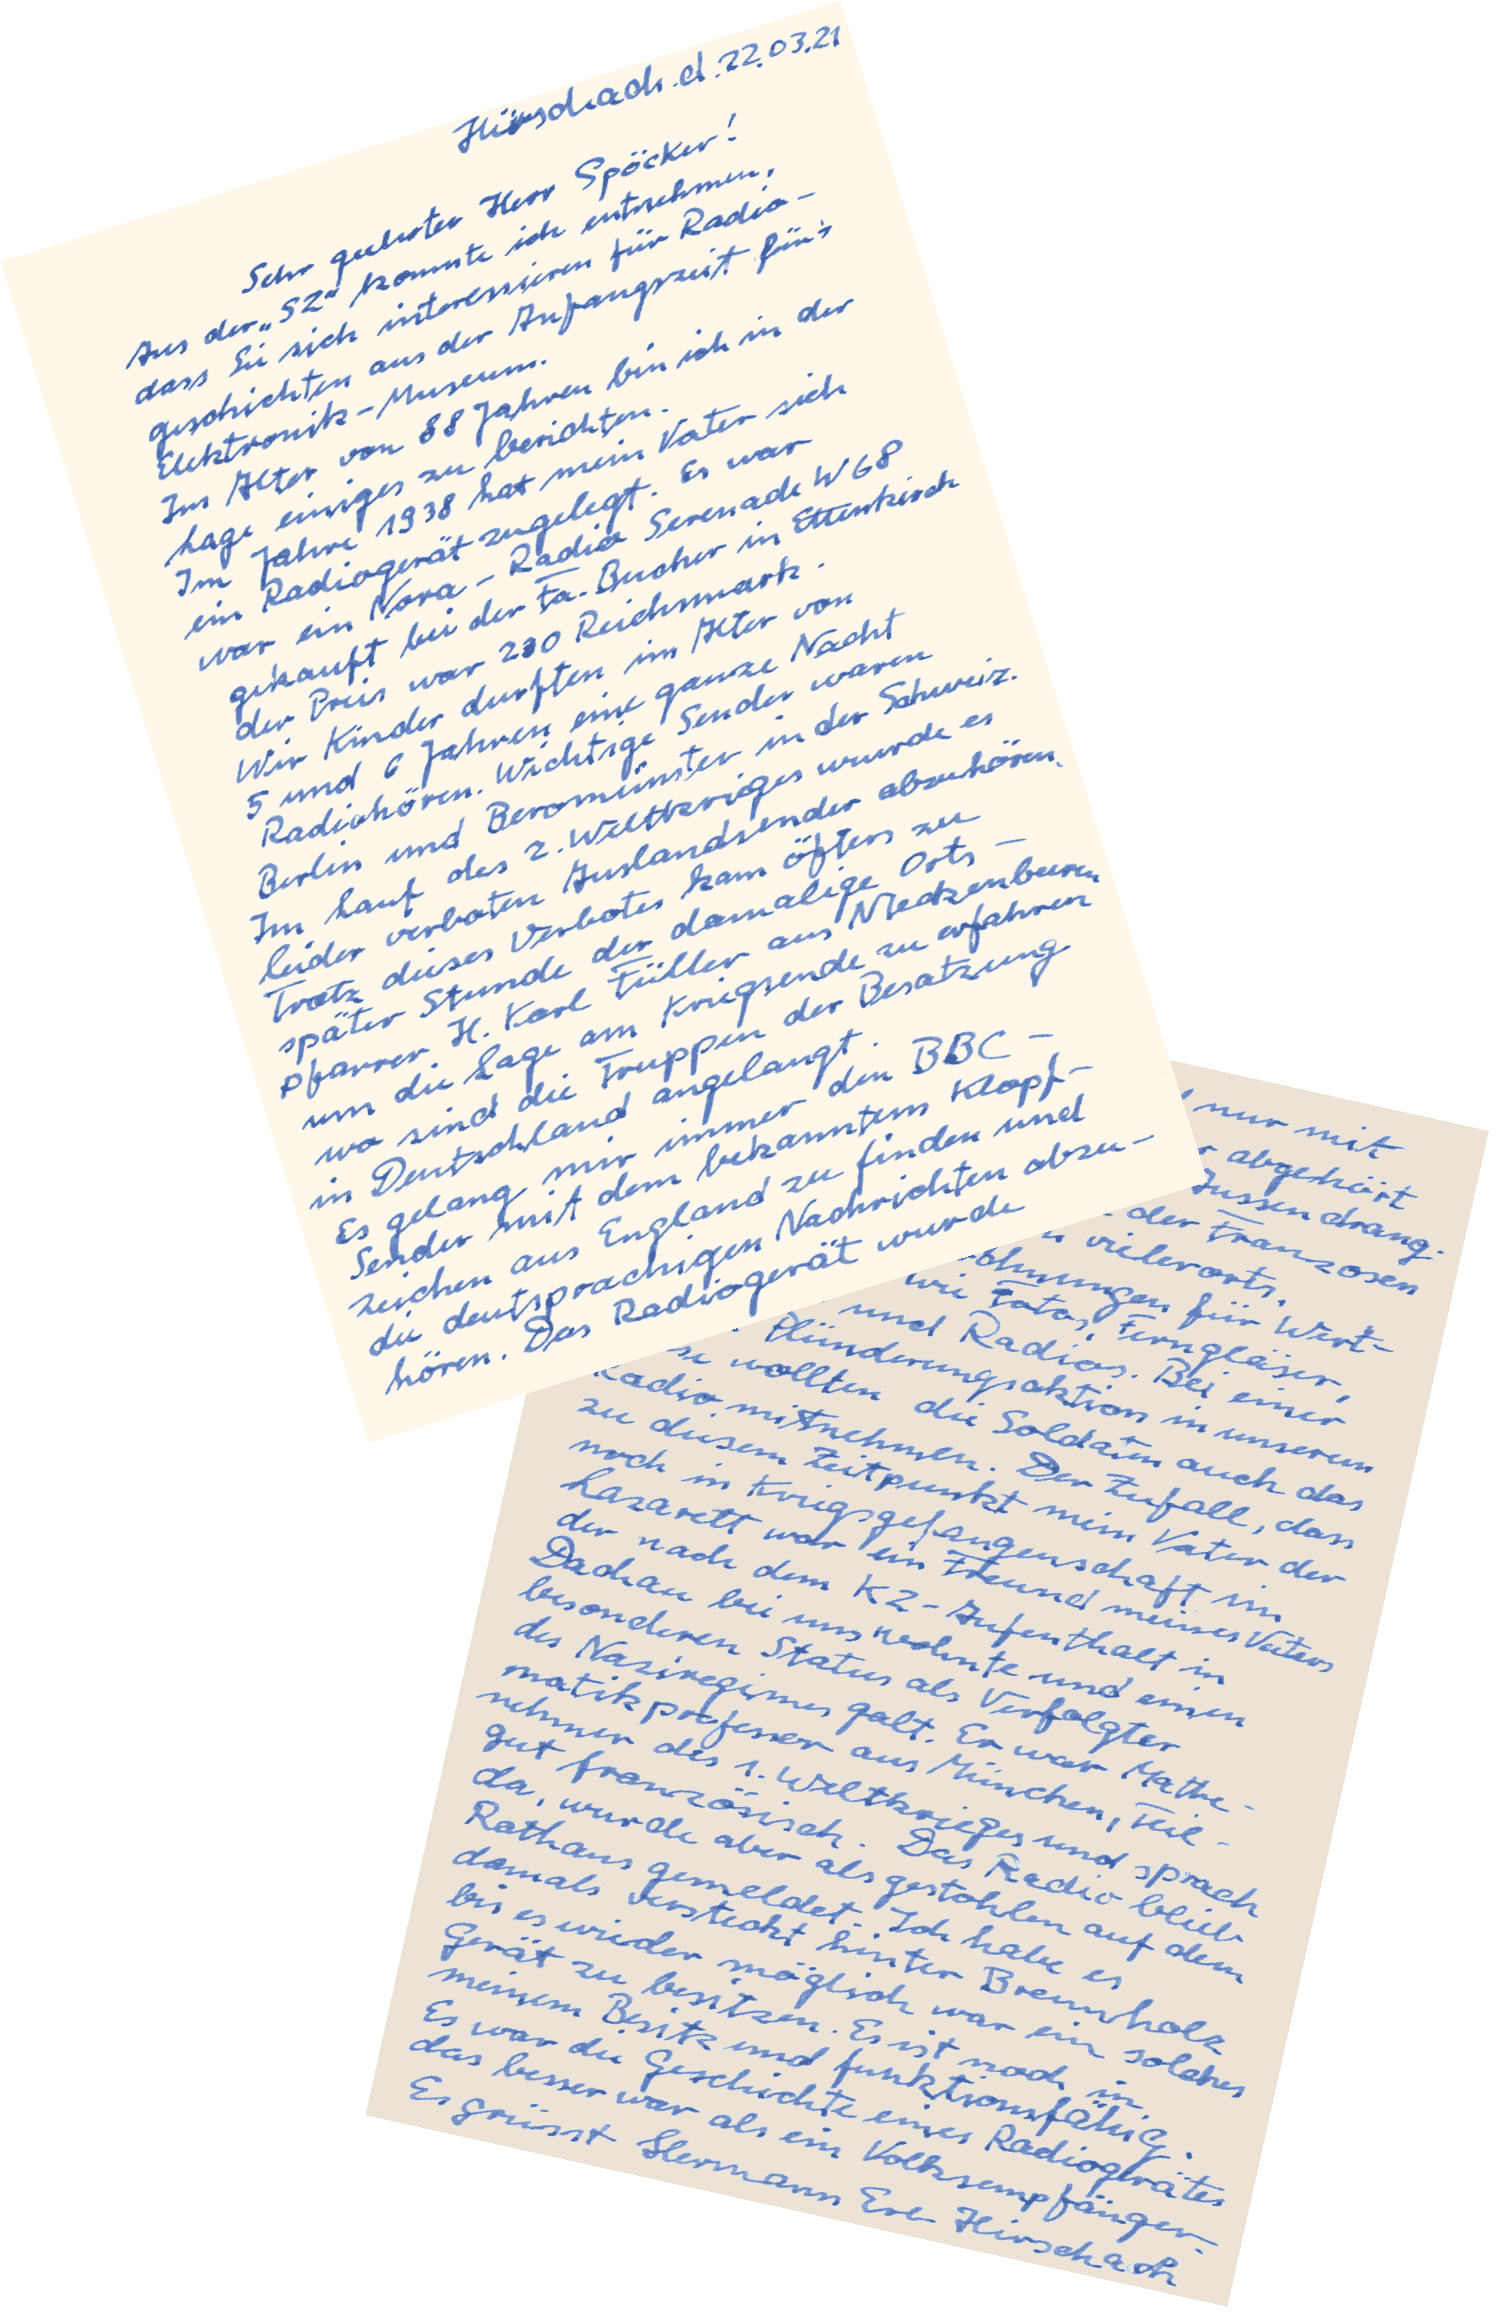 Hirschach. d. 22.03.21
Sehr geehrter Herr Spöcker!
Aus der „SZ“ konnte ich entnehmen,
dass Sie sich interessieren für Radio-
geschichten aus der Anfangszeit für's
Elektronik-Museum.
Im Alter von 88 Jahren bin ich in der
Lage einiges zu berichten.
Im Jahre 1938 hat mein Vater sich
ein Radiogerät zugelegt. Es war
war ein Nora-Radio Serenade W68
gekauft bei der Fa. Bucher in Ettenkirch
der Preis war 230 Reichsmark.
Wir Kinder durften im Alter von
5 und 6 Jahren eine ganze Nacht
Radiohören. Wichtige Sender waren
Berlin und Beromünster in der Schweiz.
Im Lauf des 2. Weltkrieges wurde es
leider verboten Auslandsender abzuhören.
Trotz dieses Verbotes kam öfters zu
später Stunde der damalige Orts-
pfarrer H. Karl Füller aus Meckenbeuren
um die Lage am Kriegsende zu erfahren
wo sind die Truppen der Besatzung
in Deutschland angelangt.
Es gelang mir immer den BBC-
Sender mit dem bekanntem Klopf-
zeichen aus England zu finden und
die deutsprachigen Nachrichten abzu-
hören. Das Radiogerät wurde
nur mit
abgehört
Aussen drang.
der Franzosen
vielerorts.
für Wert-
wie Fotos, Ferngläser,
und Radios. Bei einer
Plünderungsaktion in unserem
wollten die Soldaten auch das
Radio mitnehmen. Der Zufall, dass
zu diesem Zeitpunkt mein Vater der
noch in Kriegsgefangenschaft im
Lazarett war ein Freund meines Vaters
der nach dem KZ-Aufenthalt in
Dachau bei uns wohnte und einen
besonderen Status als Verfolgter
des Naziregimes galt. Er war Mathe-
matikprofessor aus München, Teil-
nehmer des 1. Weltkrieges und sprach
gut französisch. Das Radio blieb
da, wurde aber als gestohlen auf dem
Rathaus gemeldet. Ich habe es
damals versteckt hinter Brennholz
bis es wieder möglich war ein solches
Gerät zu besitzen. Es ist noch in
meinem Besitz und funktionsfähig.
Es war die Geschichte eines Radiogerätes
das besser war als ein Volksempfänger.
Es grüsst Hermann Erb Hirschach